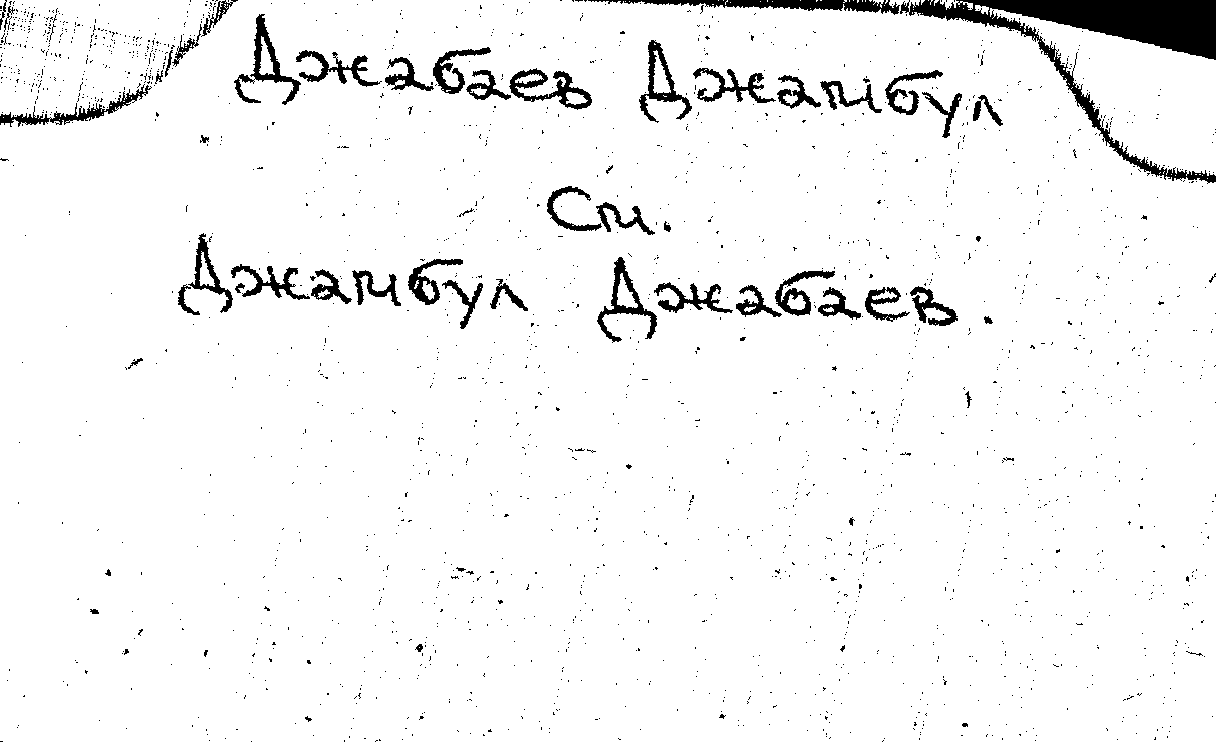 Джабаев Джамбул
См.
Джамбул Джабаев.